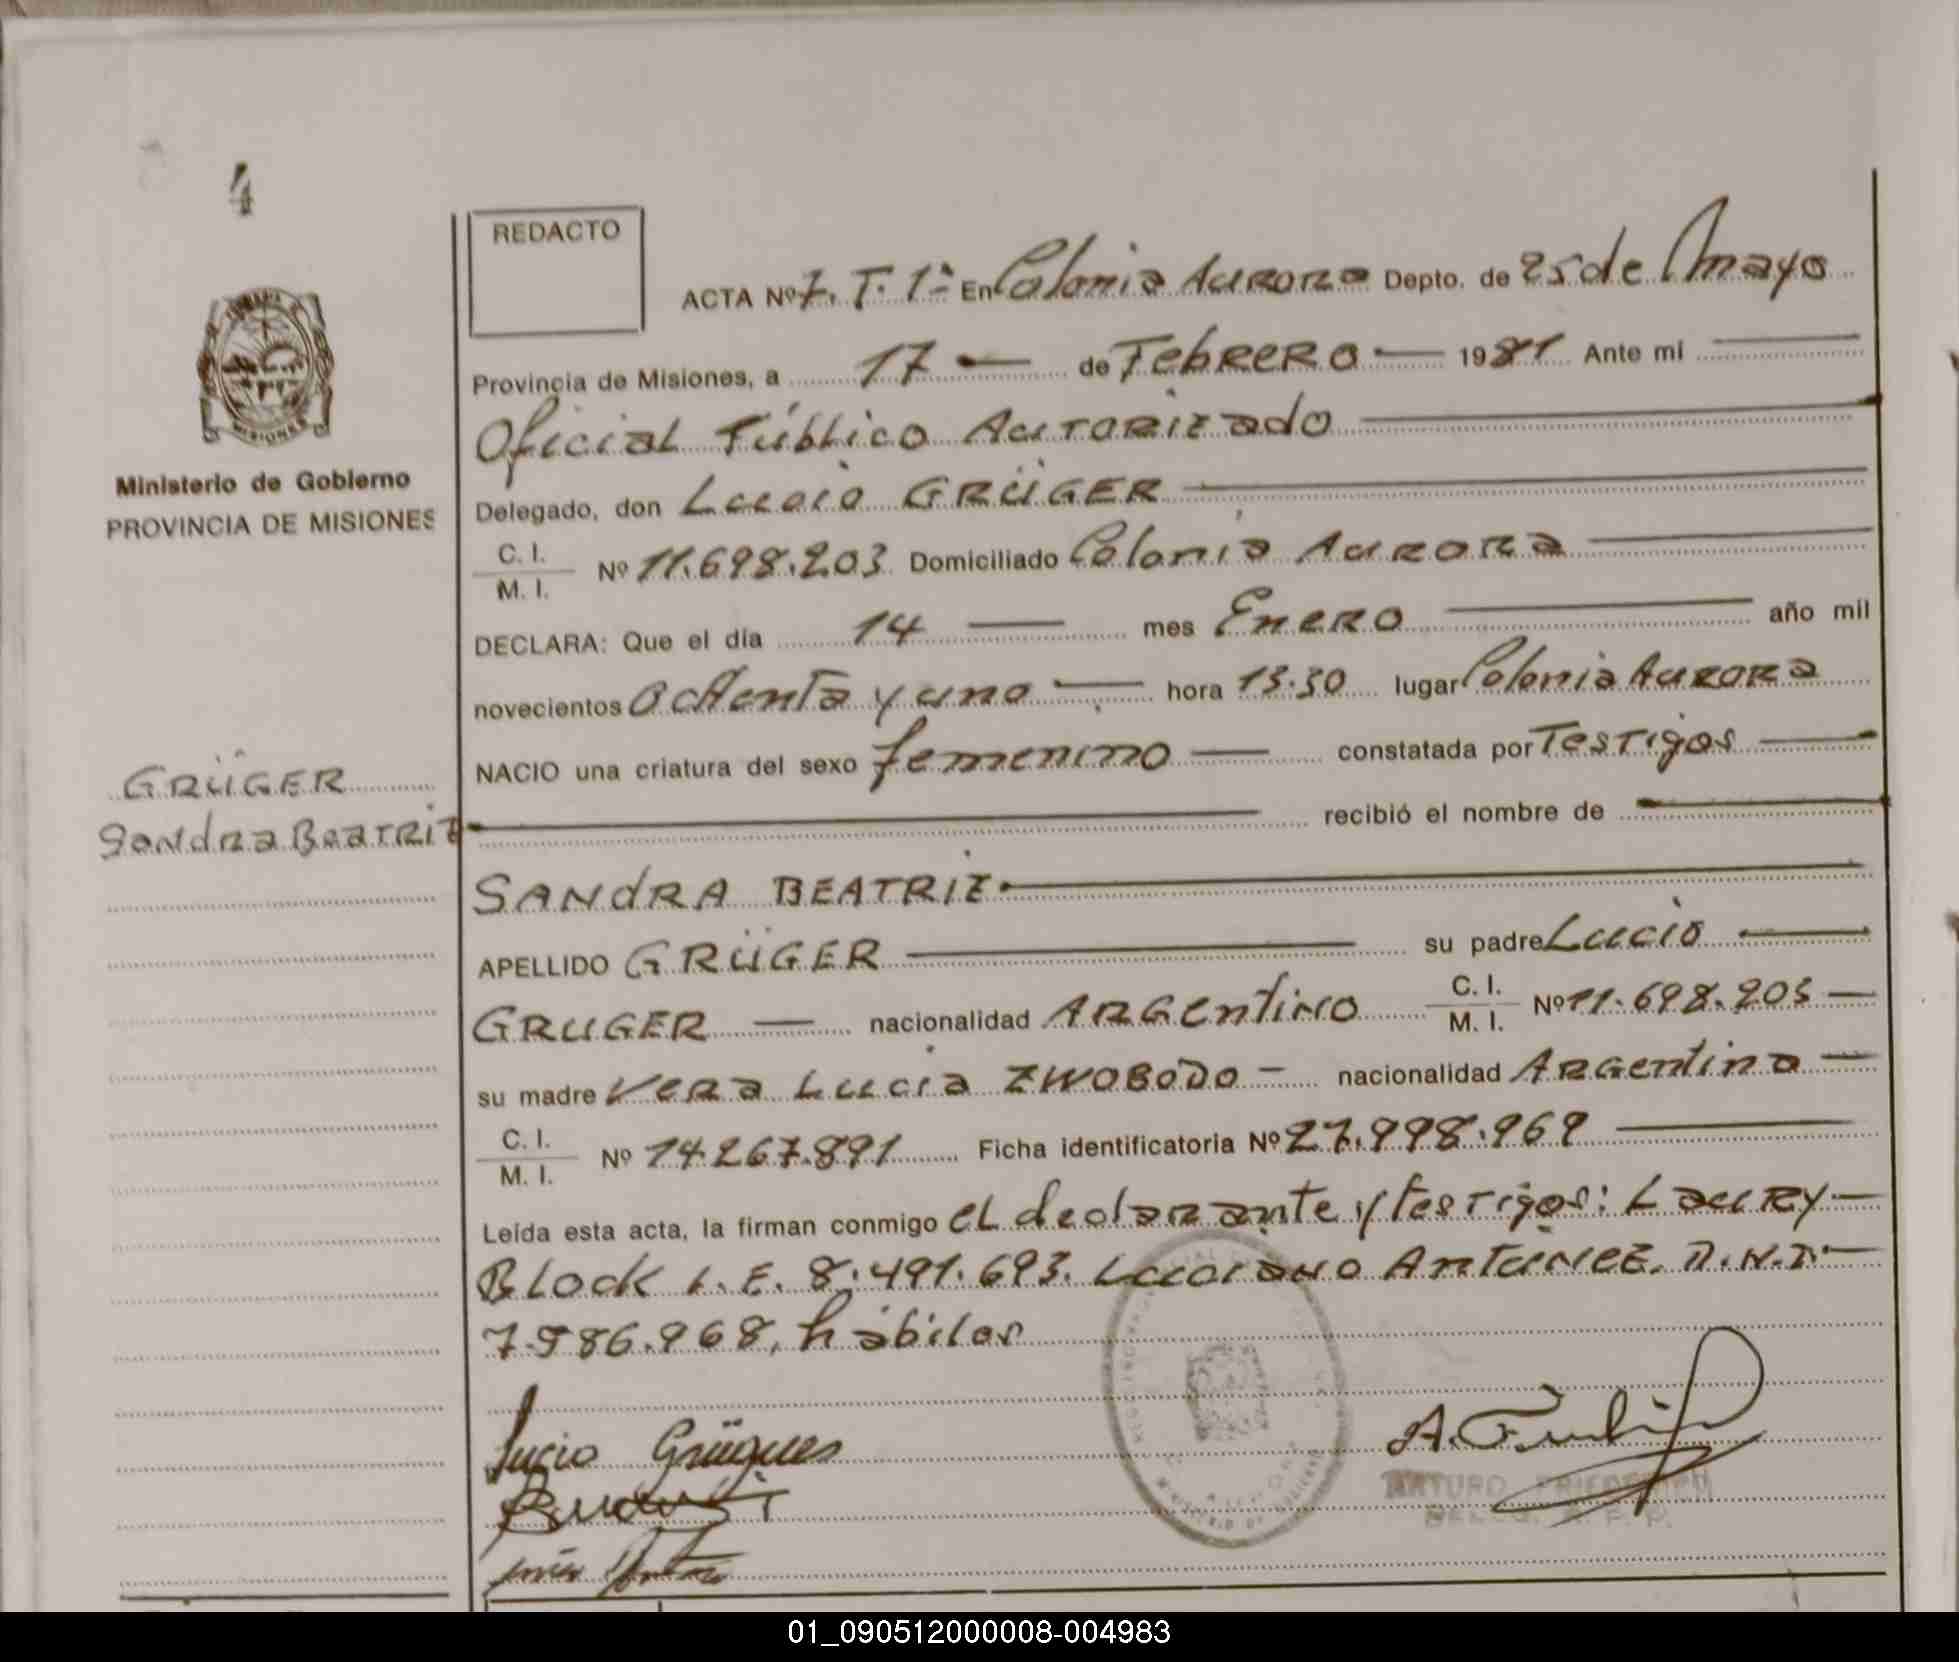 4
REDACTO
ACTA Nº 7. T. 1º En Colonia Aurora Depto. de 25 de Mayo
Provincia de Misiones, a 17 de Febrero 1981 Ante mi
Oficial Público Autorizado
Delegado, don Lucio GRÜGER
C. I.
M. I.
Nº 11.698.203 Domiciliado Colonia Aurora
DECLARA: Que el día 14 mes Enero año mil
novecientos ochenta y uno hora 13.30 lugar Colonia Aurora
NACIO una criatura del sexo femenino constatada por Testigos
recibió el nombre de
SANdRA BEATRIZ
APELLIDO GRÜGER su padre Lucio
GRUGER nacionalidad ARGentino C. I. M. I. Nº 11.698.203
su madre Vera Lucia ZWOBODO nacionalidad Argentina
C. I.
M. I.
Nº 14.267.891 Ficha identificatoria Nº 27.998.969
Leída esta acta, la firman conmigo el declarante y testigos: Laury
Block L. E. 8.491.693. Luciano Antunez. D.N.I.
7.986.968, hábiles
Ministerio de Gobierno
PROVINCIA DE MISIONES
GRÜGER
Sandra Beatriz
MISIONES
Lucio
ARTURO
01_090512000008-004983